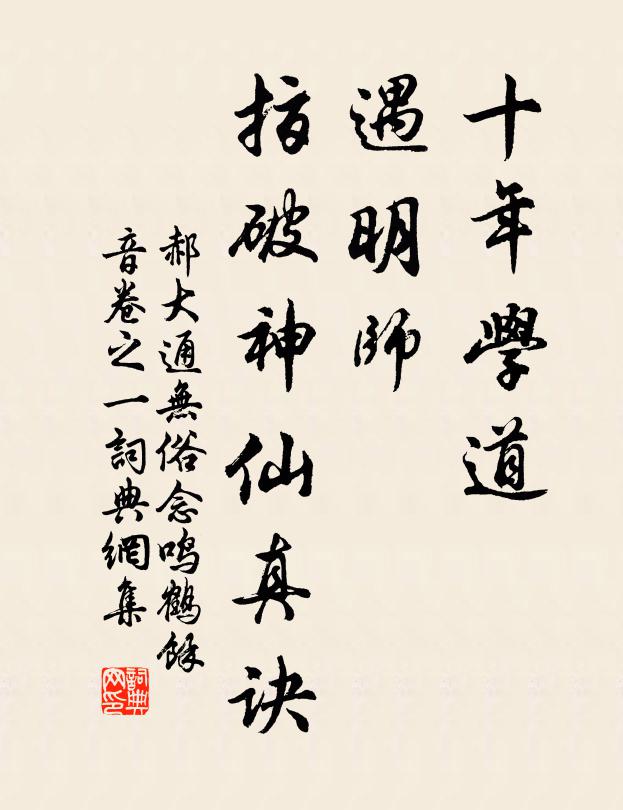 十年學道
遇明師
指破神仙真訣
郝大通無俗念鳴鶴餘
音卷之一詞典網集
詞典
网印